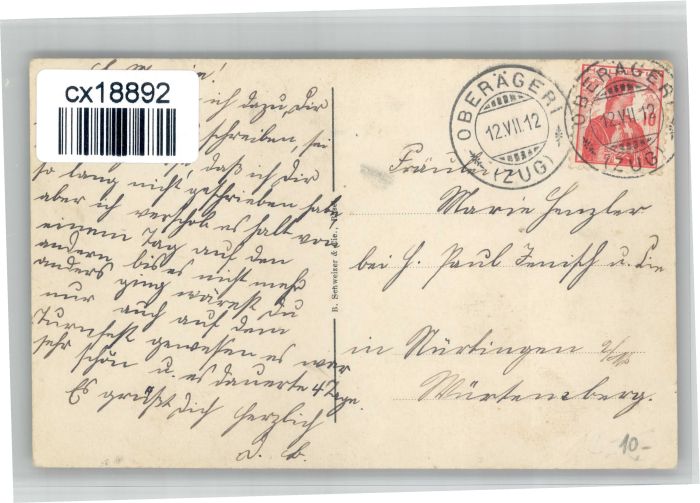 cx18892
L. Marie!
ich dazu, Dir
schreiben, sei
daß ich Dir
so lang nicht geschrieben habe
aber ich verschob es halt von
einem Tag auf den
andern bis es nicht mehr
anders ging wärest Du
nur auch auf dem
Turnfest gewesen es war
sehr schön u. es dauerte 4 Tage.
Es grüßt Dich herzlich
R. Schweizer & Cie.,
OBERÄGERI
12.VII.12
(ZUG)
OBERÄGERI
12.VII.12
(ZUG)
Fräulein
Marie Henzler
bei H. Paul Jenisch u. Cie
in Nürtingen
Würtemberg.
10-